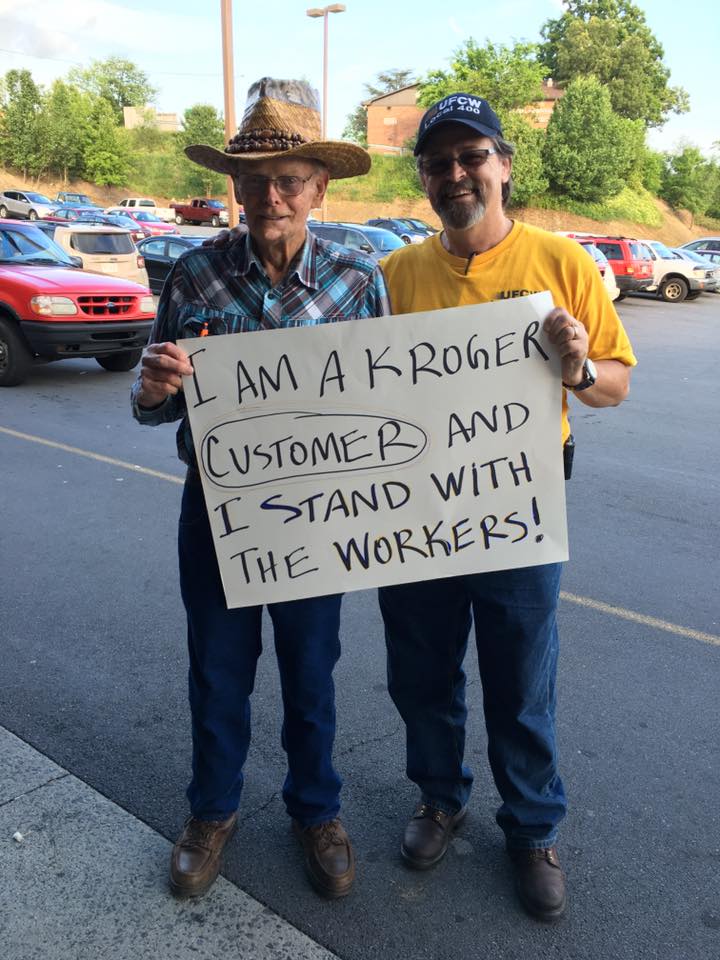 UFCW
Local 400
UFCW
I AM A KROGER
CUSTOMER AND
I STAND WITH
THE WORKERS!